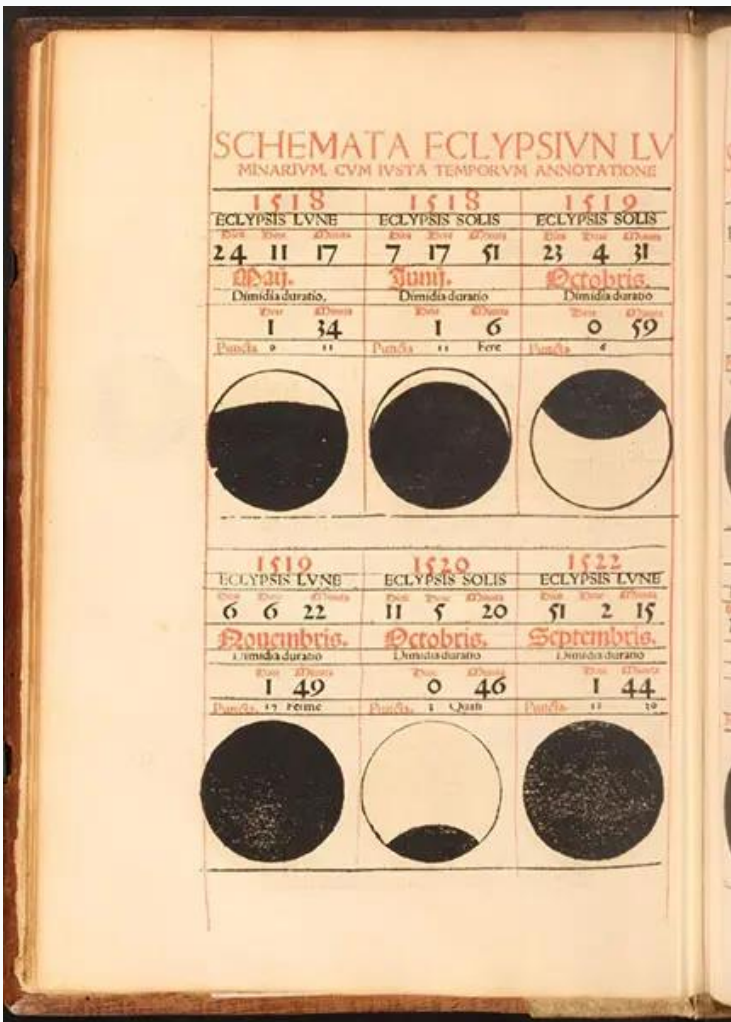 SCHEMATA ECLYPSIVN LV
MINARIVM, CVM IVSTA TEMPORVM ANNOTATIONE
1518 1518 1519
ECLYPSIS LVNE ECLYPSIS SOLIS ECLYPSIS SOLIS
Dies Hore Minuta Dies Hore Minuta Dies Hore Minuta
24 11 17 7 17 51 23 4 31
Maij. Junij. Octobris.
Dimidia duratio, Dimidia duratio Dimidia duratio
Hore Minuta Hore Minuta Hore Minuta
1 34 1 6 0 59
Puncta 9 11 Puncta 11 Fere Puncta 6
1519 1520 1522
ECLYPSIS LVNE ECLYPSIS SOLIS ECLYPSIS LVNE
Dies Hore Minuta Dies Hore Minuta Dies Hore Minuta
6 6 22 11 5 20 51 2 15
Nouembris. Octobris. Septembris.
Dimidia duratio Dimidia duratio Dimidia duratio
Hore Minuta Hore Minuta Hore Minuta
1 49 0 46 1 44
Puncta. Ferme Puncta. Quasi Puncta.